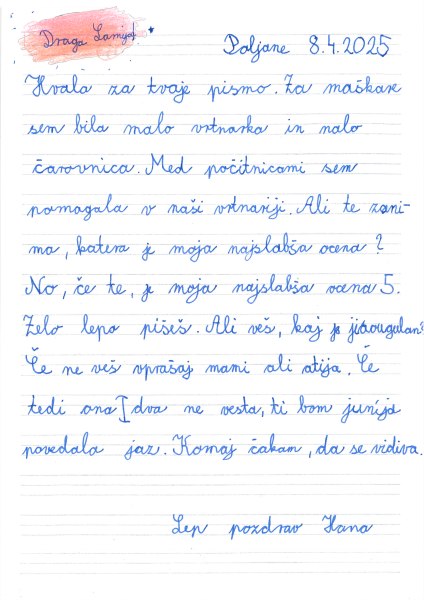 Draga Lamija!
Poljane 8.4.2025
Hvala za tvoje pismo. Za maškare
sem bila malo vrtnarka in malo
čarovnica. Med počitnicami sem
pomagala v naši vrtnariji. Ali te zani-
ma, katera je moja najslabša ocena?
No, če te, je moja najslabša ocena 5.
Zelo lepo pišeš. Ali veš, kaj je
Če ne veš vprašaj mami ali atija. Če
tedi ona dva ne vesta, ti bom junija
povedala jaz. Komaj čakam, da se vidiva.
Lep pozdrav Hana